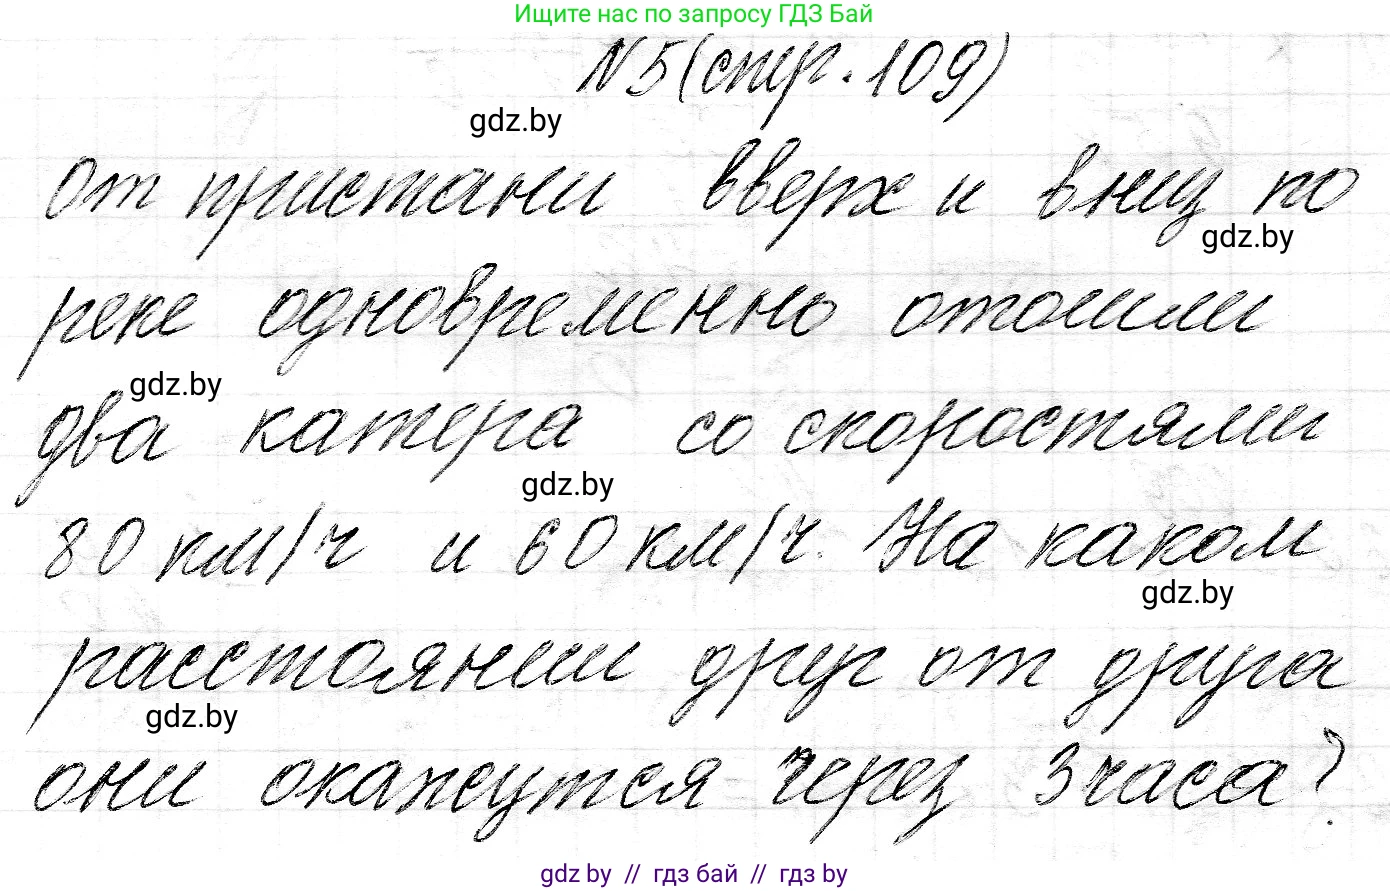 Ищите нас по запросу ГДЗ Бай
N5(стр.109)
gdz.by
От пристани вверх и вниз по
gdz.by
реке одновременно отошли
gdz.by
два катера со скоростями
gdz.by
80 км/ч и 60 км/ч. На каком
gdz.by
расстоянии друг от друга
gdz.by
они окажутся через 3 часа?
gdz by // гдз бай // гдз by